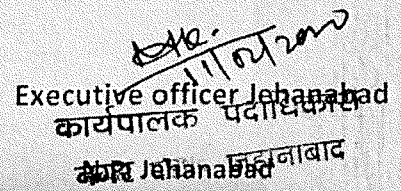 11/02/2020
Executive officer Jehanabad
कार्यपालक पदाधिकारी
नगर Jehanabad जहानाबाद